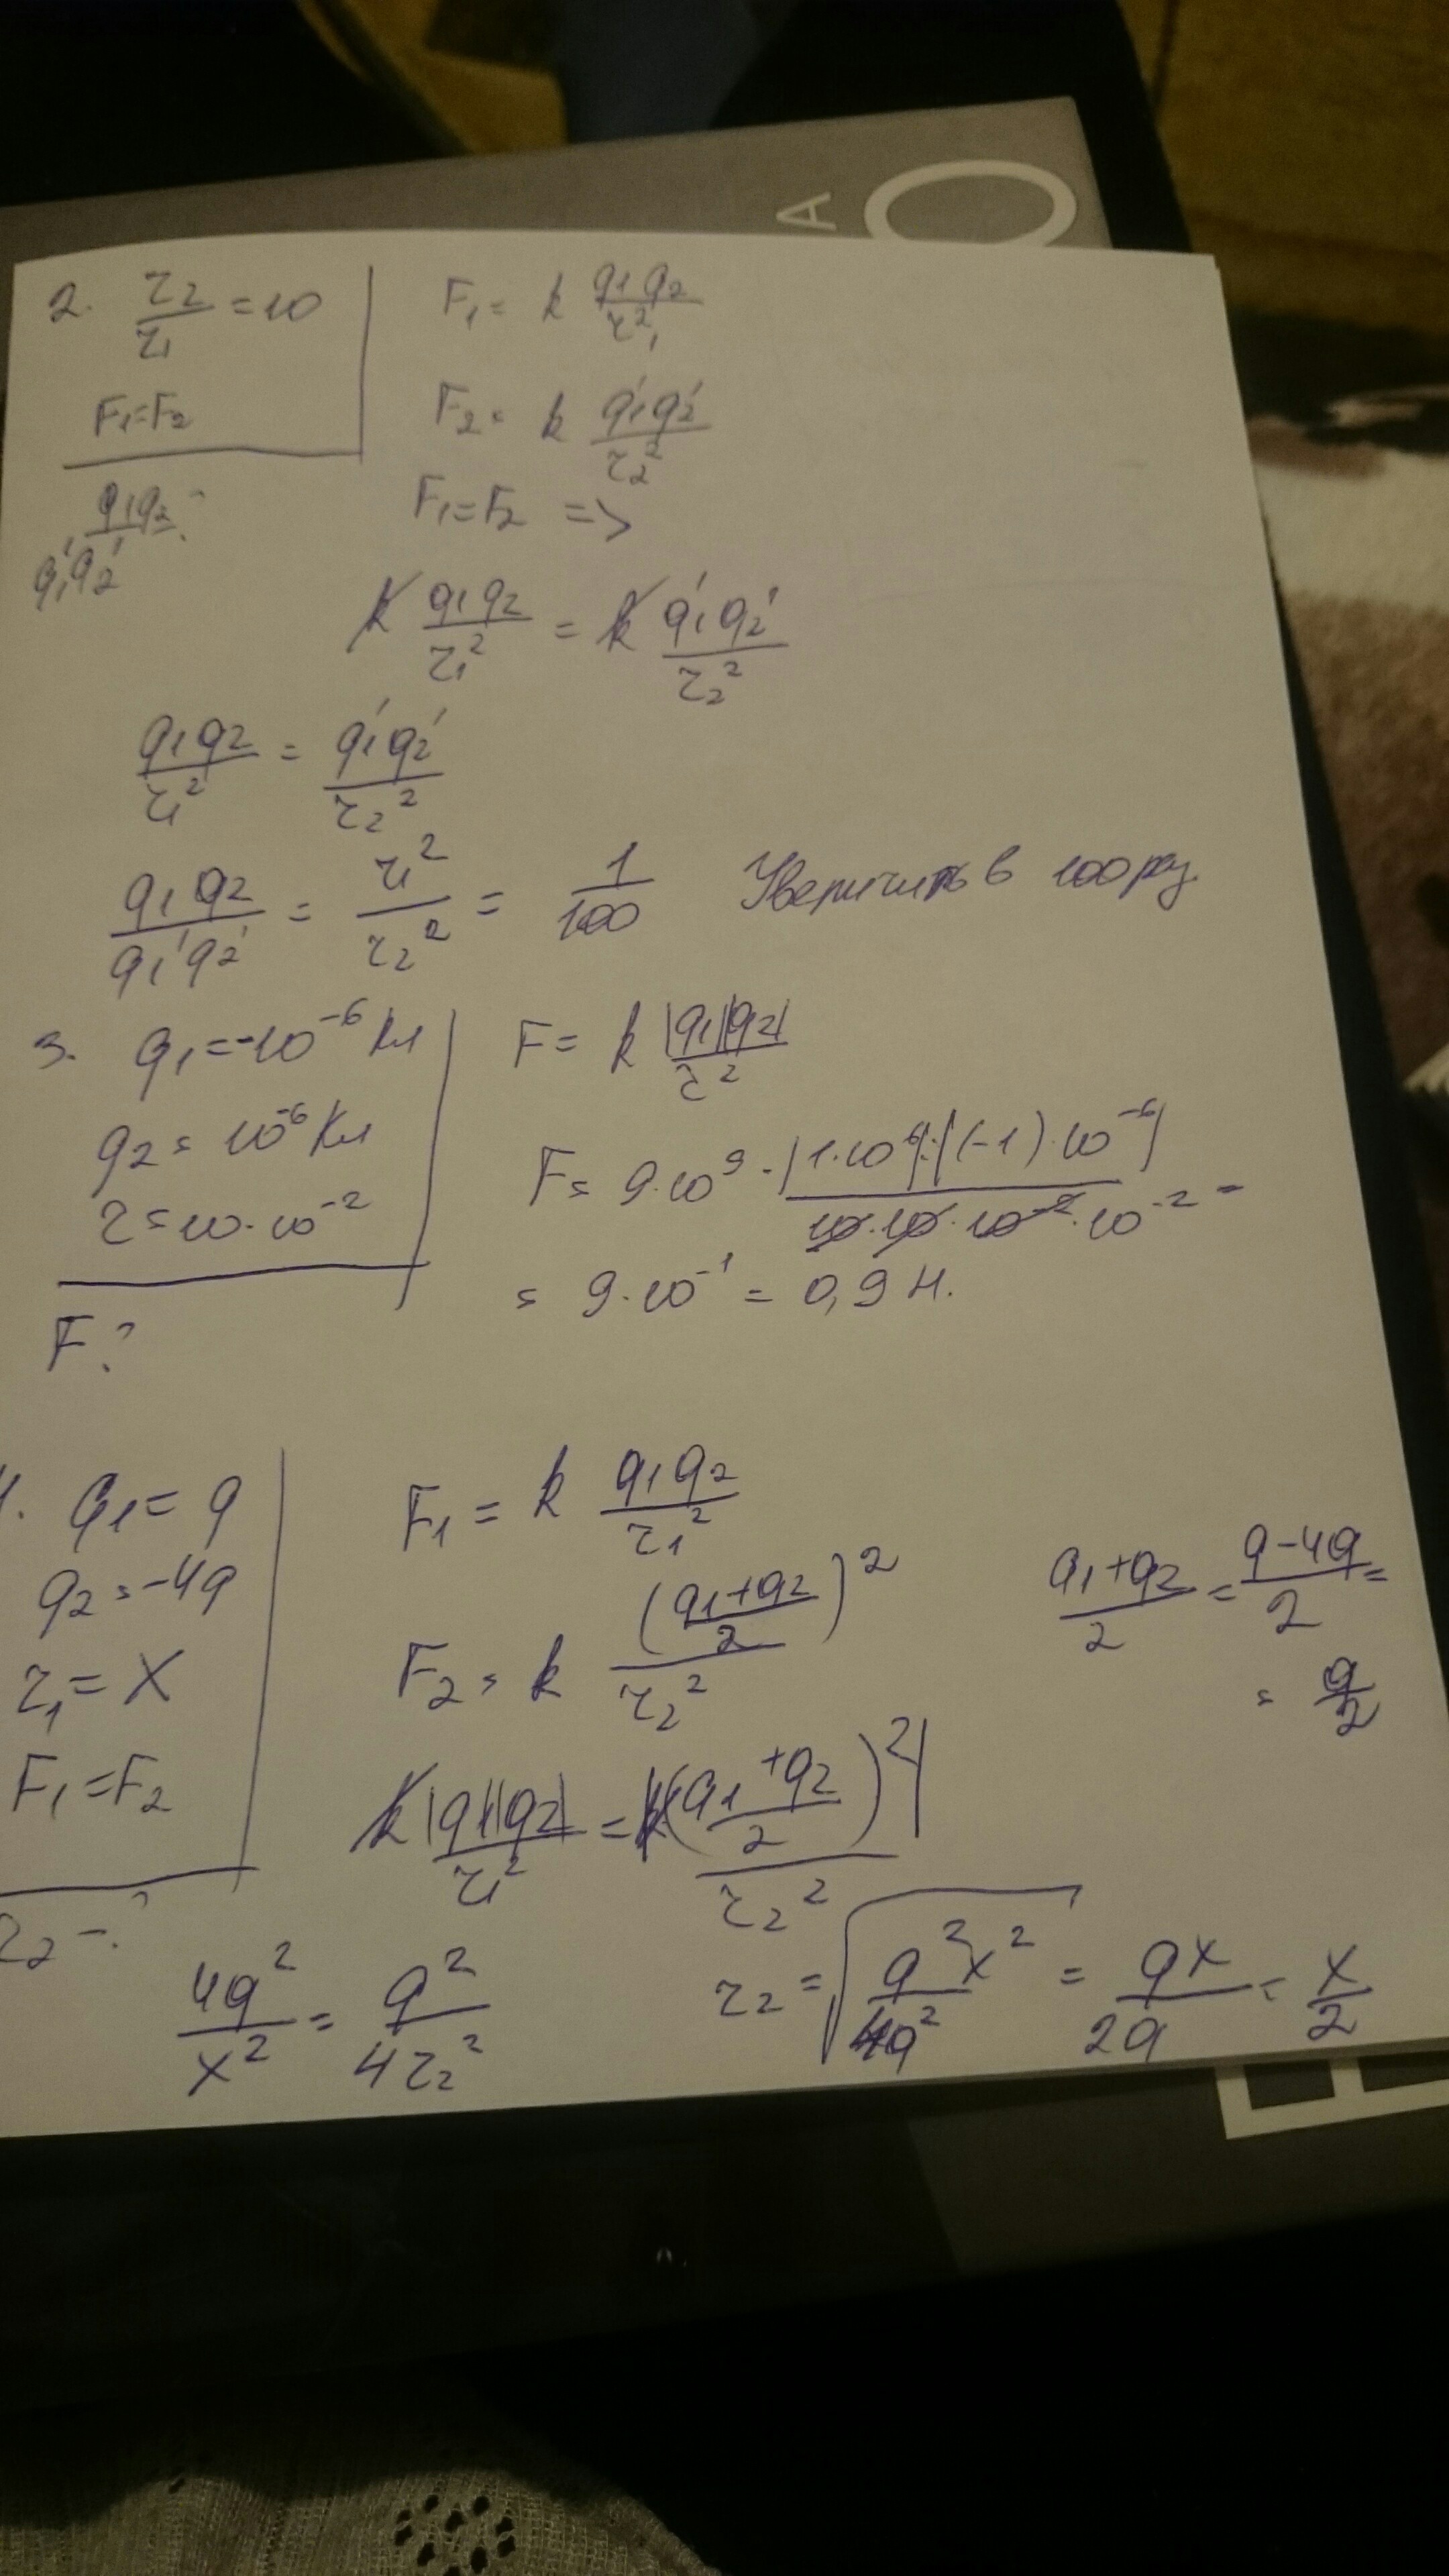 A O
2. r₂/r₁ = 10
F₁=F₂
q₁q₂/q₁'q₂' - ?
F₁ = k q₁q₂/r₁²
F₂ = k q₁'q₂'/r₂²
F₁=F₂ =>
k q₁q₂/r₁² = k q₁'q₂'/r₂²
q₁q₂/r₁² = q₁'q₂'/r₂²
q₁q₂/q₁'q₂' = r₁²/r₂² = 1/100 Увеличить в 100 раз.
3. q₁=-10⁻⁶ Кл
q₂ = 10⁻⁶ Кл
r = 10·10⁻²
F ?
F = k |q₁||q₂|/r²
F = 9·10⁹ · |1·10⁻⁶|·|(-1)·10⁻⁶|/10·10·10⁻²·10⁻² =
= 9·10⁻¹ = 0,9 Н.
4. q₁ = q
q₂ = -4q
r₁ = x
F₁ = F₂
r₂ - ?
F₁ = k q₁q₂/r₁²
F₂ = k ((q₁+q₂)/2)²/r₂²
(q₁+q₂)/2 = (q-4q)/2 =
= q/2
k|q₁||q₂|/r₁² = k|((q₁+q₂)/2)²|/r₂²
4q²/x² = q²/4r₂²
r₂ = √(q²x²/4q²) = qx/2q = x/2